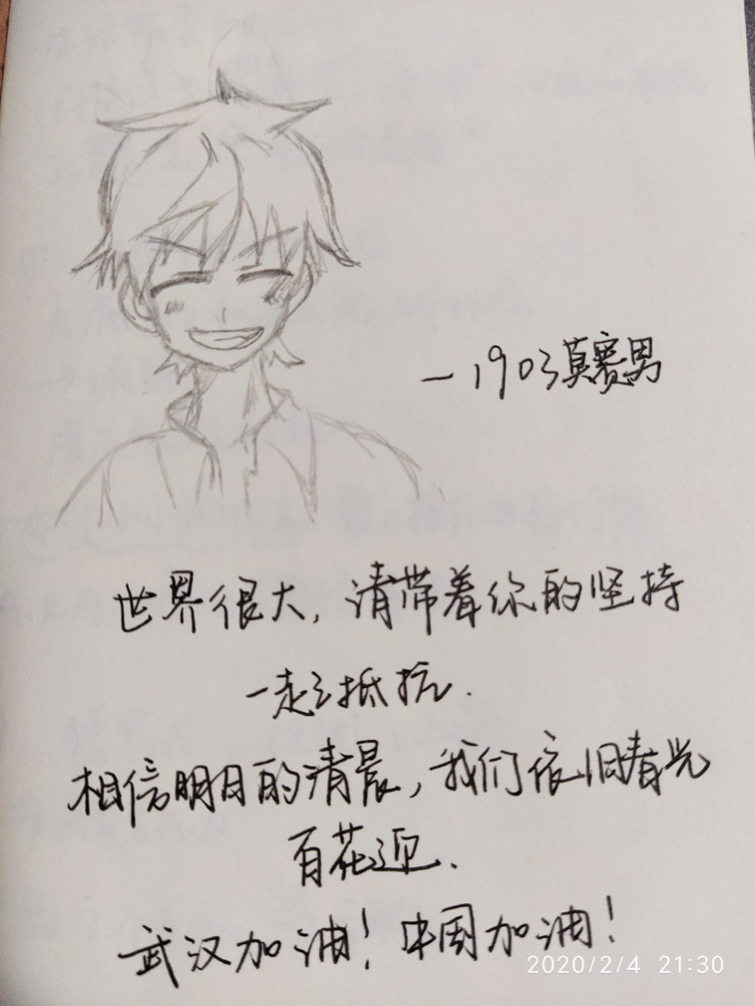 —1903莫赛男
世界很大，请带着你的坚持
一起抵抗.
相信明日的清晨，我们依旧春光
百花迎.
武汉加油！中国加油！
2020/2/4 21:30